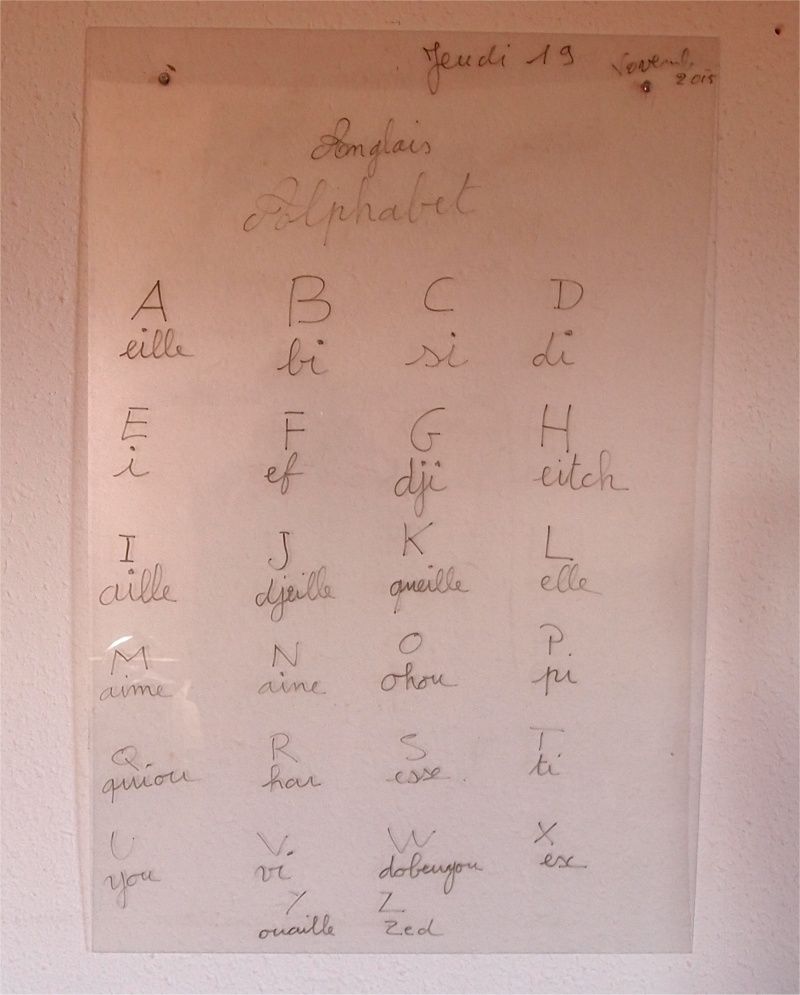 Jeudi 19 Novemb 2015
Anglais
Alphabet
A B C D
eille bi si di
E F G H
i ef dji eitch
I J K L
aille djeille queille elle
M N O P.
aime aine ohou pi
Q R S T
quiou har esse ti
U V. W X
you vi dobeuyou ex
Y Z
ouaille zed